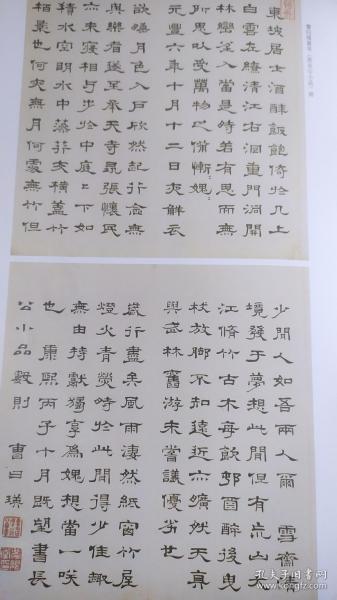 東坡居士酒醉飯飽倚於几上
白雲左繚清江右洄重門洞開
林巒坌入當是時若有思而無
所思以受萬物之備慚愧〻〻
元豐六年十月十二日夜解衣
欲睡月色入戶欣然起行念無
與樂者遂至承天寺尋張懷民
亦未寢相與步於中庭〻下如
積水空明水中藻荇交橫蓋竹
柏景也何夜無月何處無竹但
少閒人如吾兩人爾 雪齋
境發于夢想此間但有荒山大
江脩竹古木每飲邨酒醉後曳
杖放腳不知遠近亦曠然天真
與武林舊游未嘗議優劣也
歲行盡矣風雨淒然紙窗竹屋
燈火青熒時於此間得少佳趣
無由持獻獨享為愧想當一咲
也 康熙丙子十月既望書長
公小品數則 曹曰瑛
孔夫子旧书网